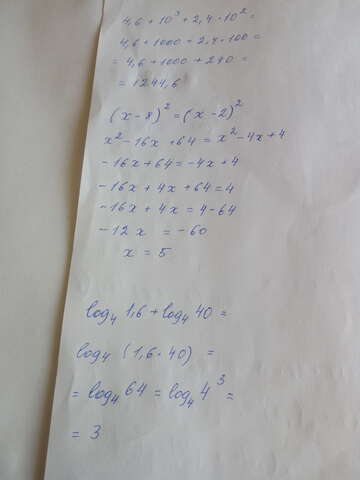 4,6 + 10³ + 2,4 · 10² =
4,6 + 1000 + 2,4 · 100 =
= 4,6 + 1000 + 240 =
= 1244,6
(x - 8)² = (x - 2)²
x² - 16x + 64 = x² - 4x + 4
- 16x + 64 = - 4x + 4
- 16x + 4x + 64 = 4
- 16x + 4x = 4 - 64
- 12x = - 60
x = 5
log₄ 1,6 + log₄ 40 =
log₄ (1,6 · 40) =
= log₄ 64 = log₄ 4³ =
= 3